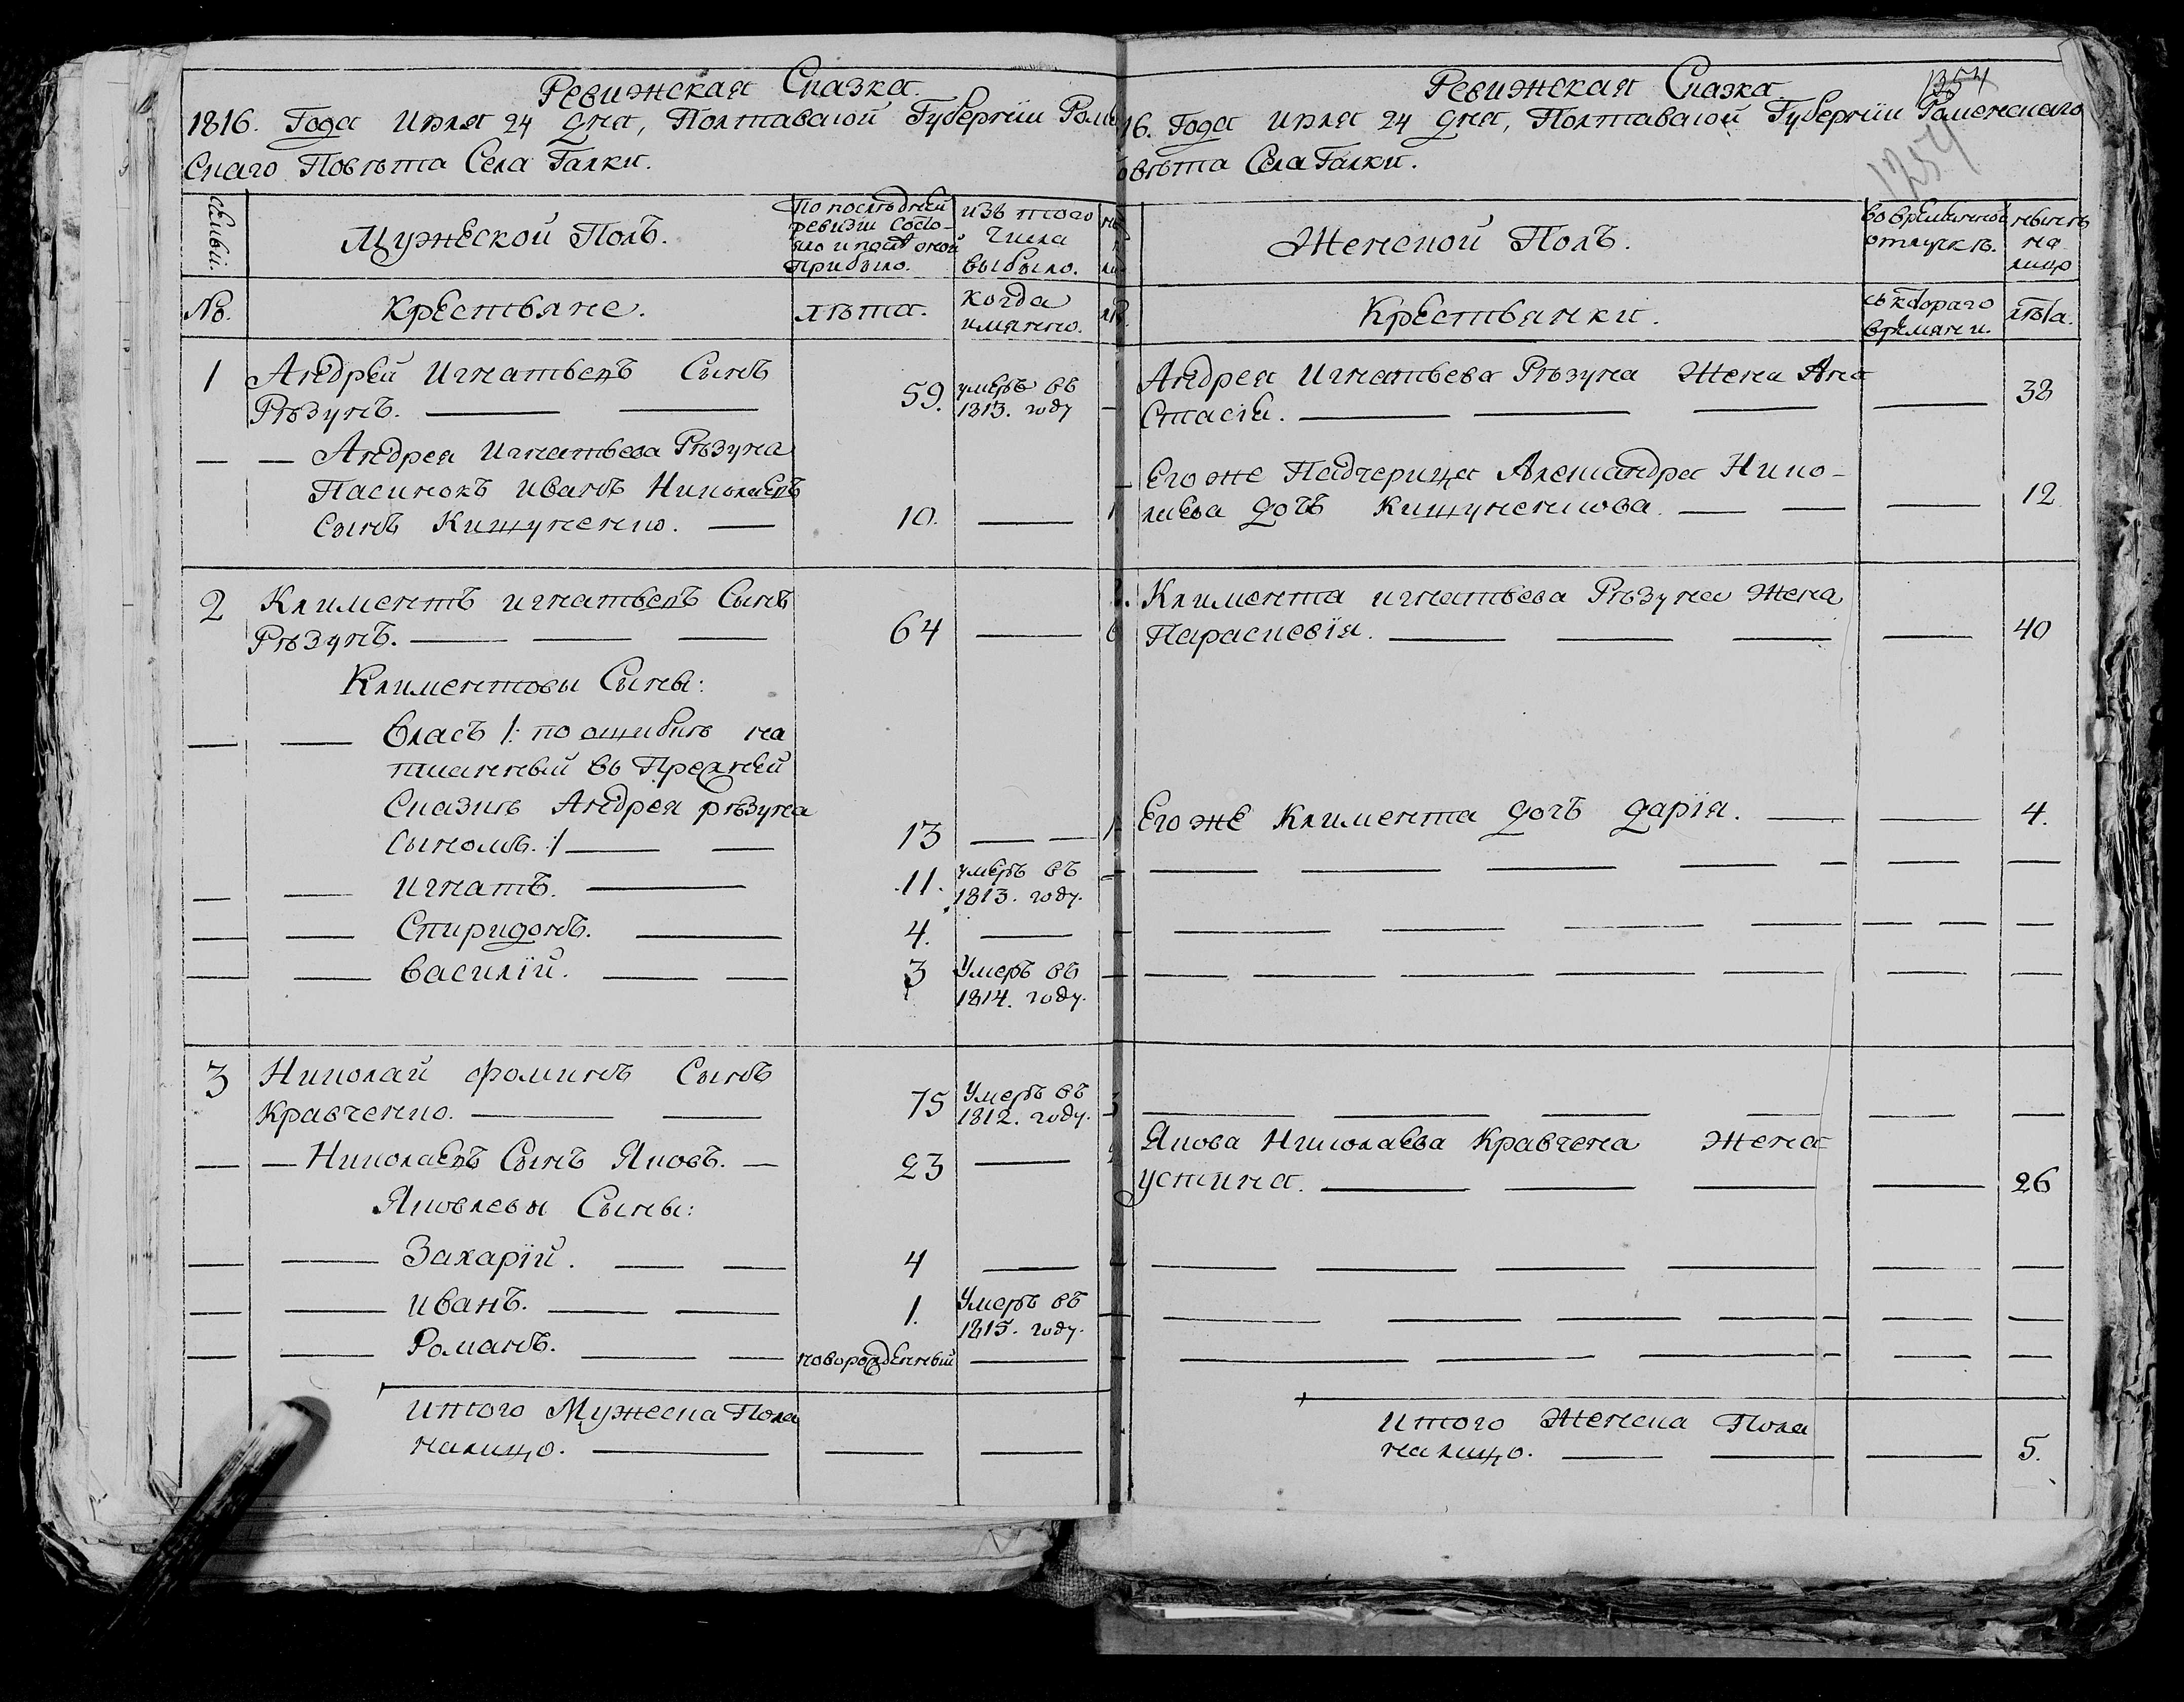 Ревижская Сказка.
1816. Года Июля 24 дня, Полтавской Губернїи Роме
скаго Повѣта Села Галки.
семьи.
Мужеской Полъ.
По послѣдней
ревизїи состо-
яло и послѣ оной
прибыло.
изъ того
числа
выбыло.
№.
Крестьяне.
лѣта.
когда
имянно.
1 Андрей Игнатьевъ Сынъ
Рѣзунъ. 59. умеръ въ
1813. году
Андрея Игнатьева Рѣзуна
Пасинокъ Иванъ Николаевъ
Сынъ Кищуненко. 10.
2 Климентъ игнатьевъ Сынъ
Рѣзунъ. 64
Климентовы Сыны:
Власъ /: по ошибкѣ на
писанный въ Прежней
Сказкѣ Андрея рѣзуна
сыномъ. :/ 13
Игнатъ. 11. умеръ въ
1813. году.
Спиридонъ. 4.
Василїй. 3 Умеръ въ
1814. году.
3 Николай Фоминъ Сынъ
Кравченко. 75 Умеръ въ
1812. году.
Николаевъ Сынъ Яковъ. 23
Яковлевы Сыны:
Захарїй. 4
Иванъ. 1. Умеръ въ
1815. году.
Романъ. новорожденный
Итого Мужеска Пола
налицо.
1354
Ревижская Сказка.
16. Года Июля 24 дня, Полтавской Губернїи Роменскаго
овѣта Села Галки.
1254
Женской Полъ.
во временной
отлучкѣ.
нынѣ
на
лицо
Крестьянки.
съ котораго
времяни.
лѣта.
Андрея Игнатьева Рѣзуна Жена Ана
Стасїя. 38
Его же Падчерица Александра Нико-
лаева дочь Кищуненкова. 12.
Климента игнатьева Рѣзуна Жена
Параскевїя. 40
Его же Климента дочь дарїя. 4.
Якова Николаева Кравченка Жена
устина. 26
Итого Женска Пола
налицо. 5.